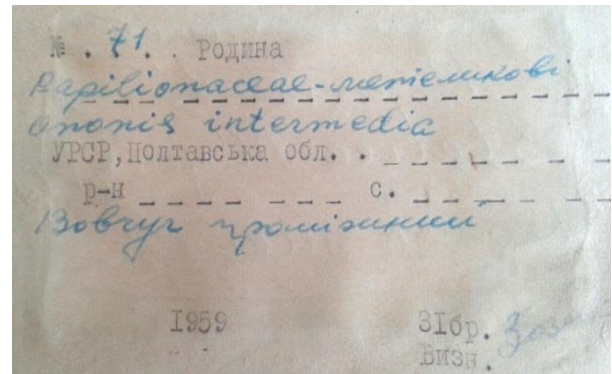 № . 71. . Родина
Papilionaceae-метеликові
Ononis intermedia
УРСР, Полтавська обл. .
р-н с.
Вовчуг проміжний
1959 Зібр.
Визн.